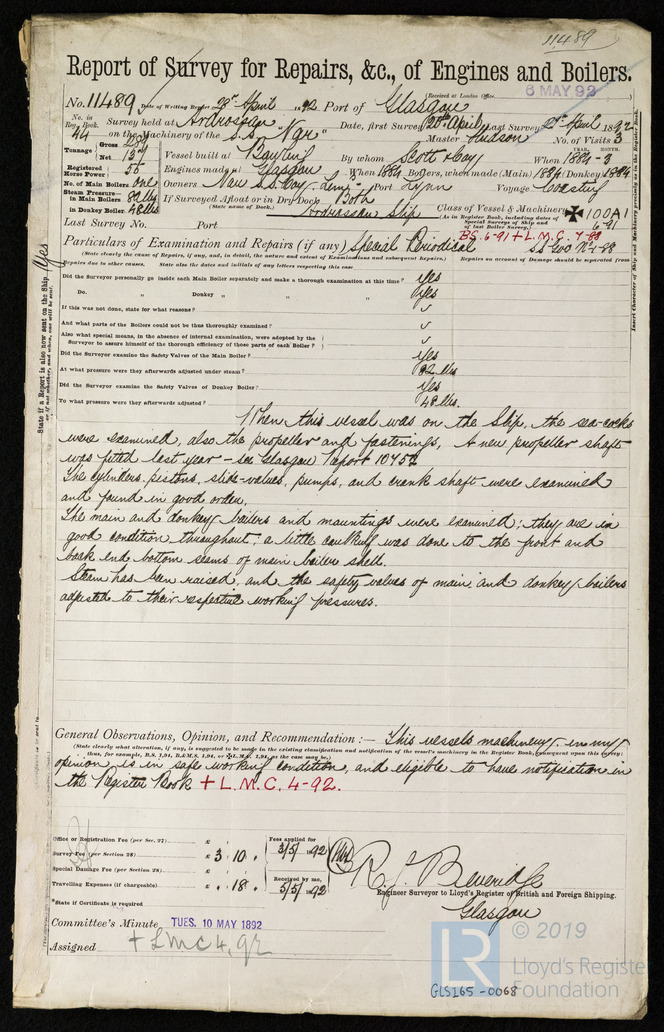 11,489
Report of Survey for Repairs, &c., of Engines and Boilers.
(Received at London Office,
6 MAY 92
No. 11489 Date of Writing Report 28th April 1892 Port of Glasgow
No. in Reg. Book. 44 Survey held at Ardrossan Date, first Survey 20th April Last Survey 1892
on the Machinery of the S.S. "Nar" Master Hudson No. of Visits 3
Tonnage Gross Net Vessel built at Bowling By whom Scott & Coy When 1884-3
YEAR. MONTH.
Registered Horse Power 50 Engines made at Glasgow When 1884 Boilers, when made (Main) 1884 (Donkey) 1884
No. of Main Boilers one Owners Nar S.S. Coy Lim. Port Lynn Voyage Coasting
Steam Pressure in Main Boilers 82 lbs If Surveyed Afloat or in Dry Dock Both
in Donkey Boiler 48 lbs (State name of Dock.) Ardrossan Slip Class of Vessel & Machinery ✠ 100A1
(As in Register Book, including dates of Special Surveys of Ship and of last Boiler Survey.) 6-91
Last Survey No. Port BS. 6-91 + L.M.C. 4-88
Particulars of Examination and Repairs (if any) Special Periodical
(State clearly the cause of Repairs, if any, and, in detail, the nature and extent of Examinations and subsequent Repairs.) Repairs on account of Damage should be separated from
Repairs due to other causes. State also the dates and initials of any letters respecting this case
Did the Surveyor personally go inside each Main Boiler separately and make a thorough examination at this time? Yes
Do. " Donkey " " " Yes
If this was not done, state for what reasons? ✓
And what parts of the Boilers could not be thus thoroughly examined? ✓
Also what special means, in the absence of internal examination, were adopted by the
Surveyor to assure himself of the thorough efficiency of those parts of each Boiler? ✓
Did the Surveyor examine the Safety Valves of the Main Boiler? Yes
At what pressure were they afterwards adjusted under steam? 82 lbs
Did the Surveyor examine the Safety Valves of Donkey Boiler? Yes
To what pressure were they afterwards adjusted? 48 lbs.
When this vessel was on the Slip, the sea-cocks
were examined, also the propeller and fastenings, A new propeller shaft
was fitted last year - see Glasgow Report 10452
The cylinders, pistons, slide-valves, pumps, and crank shaft were examined
and found in good order.
The main and donkey boilers and mountings were examined; they are in
good condition throughout; a little caulking was done to the front and
back end bottom seams of main boilers shell.
Steam has been raised, and the safety valves of main and donkey boilers
adjusted to their respective working pressures.
General Observations, Opinion, and Recommendation :— This vessels machinery in my
(State clearly what alteration, if any, is suggested to be made in the existing classification and notification of the vessel's machinery in the Register Book, consequent upon this survey;
thus, for example, B.S. 1,94, B.&M.S. 1,94, or ✠L.M.C. 1,94, as the case may be.)
opinion, is in safe working condition, and eligible to have notification in
the Register Book + L.M.C. 4-92.
Office or Registration Fee (per Sec. 27) £ Fees applied for
Survey Fee (per Section 28) £ 3 . 10 . 3/5/1892
Special Damage Fee (per Section 28) £ Received by me,
Travelling Expenses (if chargeable) £ . 18 . 5/5/1892
R. J. Beveridge
Engineer Surveyor to Lloyd's Register of British and Foreign Shipping.
*State if Certificate is required
Glasgow
Committee's Minute TUES. 10 MAY 1892
Assigned + LMC 4,92
State if a Report is also now sent on the Ship, Yes
or if not, whether, and when, one will be sent.
Insert Character of Ship and Machinery precisely as in the Register Book.
LR © 2019
Lloyd's Registe
Foundation
GLS165-0068